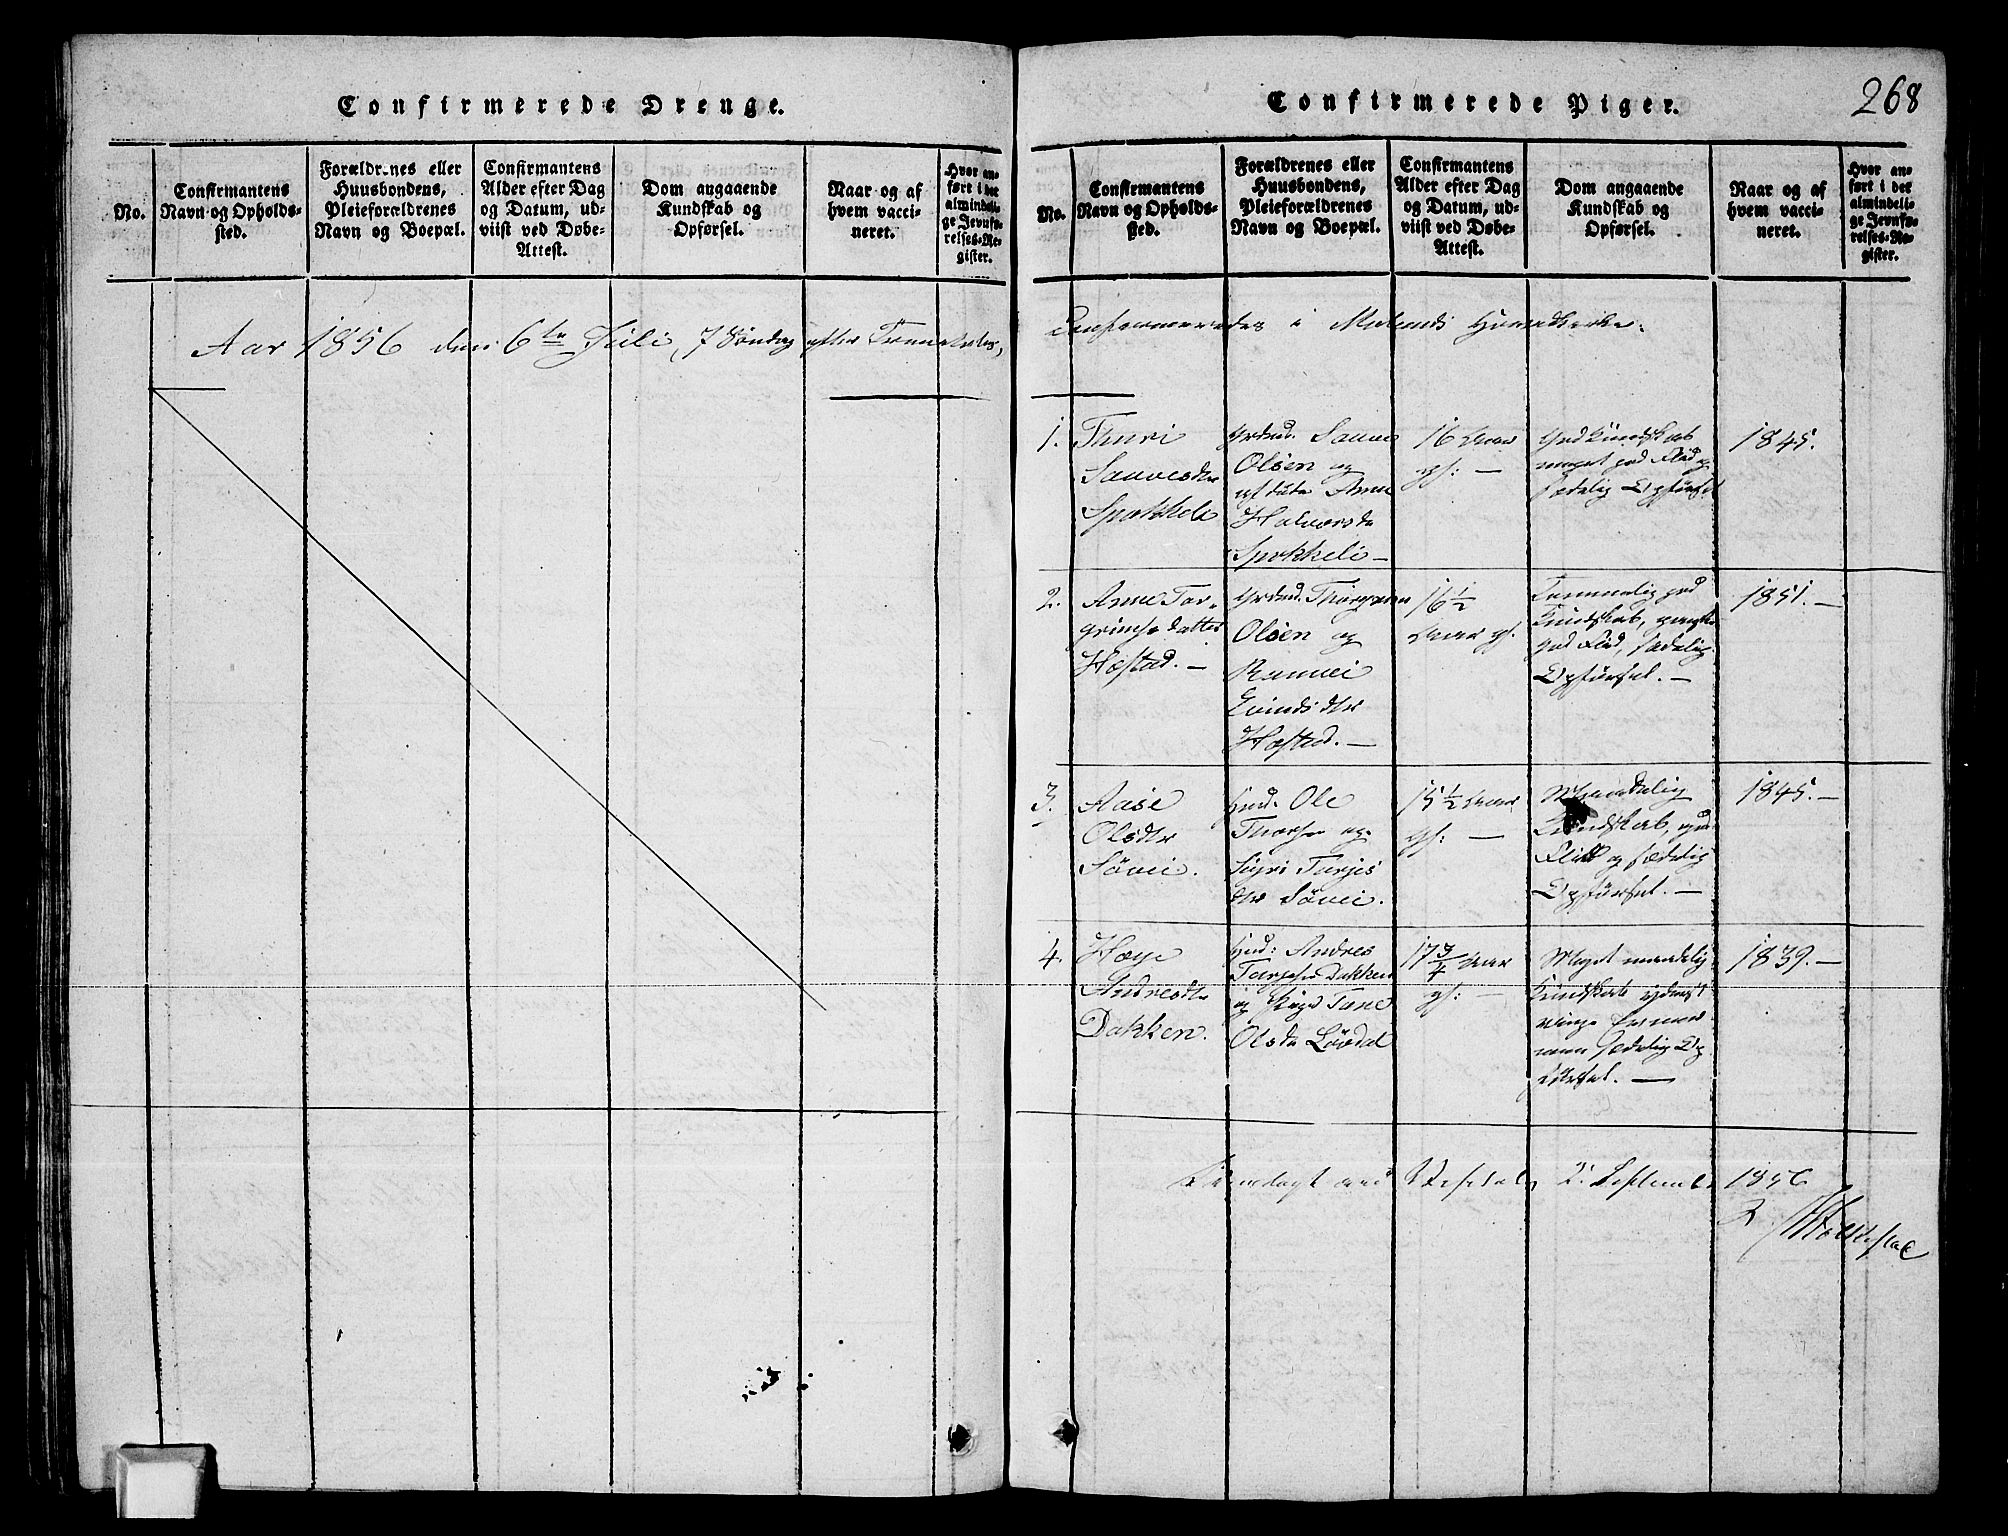 Confirmerede Drenge.
No.
Confirmantens
Navn og Opholds-
sted.
Forældrenes eller
Huusbondens,
Pleieforældrenes
Navn og Boepæl.
Confirmantens
Alder efter Dag
og Datum, ud-
viist ved Døbe-
Attest.
Dom angaaende
Kundskab og
Opførsel.
Naar og af
hvem vacci-
neret.
Hvor an-
ført i det
almindeli-
ge Jevnfø-
relses-Re-
gister.
Aar 1856 den 6te Juli, 7 Søndag efter
Confirmerede Piger.
268
No.
Confirmantens
Navn og Opholds-
sted.
Forældrenes eller
Huusbondens,
Pleieforældrenes
Navn og Boepæl.
Confirmantens
Alder efter Dag
og Datum, ud-
viist ved Døbe-
Attest.
Dom angaaende
Kundskab og
Opførsel.
Naar og af
hvem vacci-
neret.
Hvor an-
ført i det
almindeli-
ge Jevnfø-
relses-Re-
gister.
i Hovedkirke.
1.
Thuri
Sauvesdtr
Sauve
Olsen og
Anne
Halvorsdtr
Spokkeli —
16 Aar
gl: —
God Kundskab
meget god Flid og
sædelig Opførsel
1845.
2.
Anne Tor-
grimsdatter
Hæstad. —
Olsen og
Eivindsdtr
Hæstad. —
16 1/2
Aar gl.
Temmelig god
Kundskab, ganske
god Flid, sædelig
Opførsel. —
1851. —
3.
Aase
Olsdtr
Søvei.
Ole
og
Sigri Tarjes
dtr Søvei.
15 1/2 Aar
gl: —
Maadelig
Kundskab, god
Flid og sædelig
Opførsel. —
1845. —
4.
Hæge
Andresdtr
Dakken.
Andres
Dakken
og Pige Tone
Olsdtr
17 3/4 Aar
gl: —
Meget maadelig
Kundskab yderst
ringe
sædelig Op
førsel. —
1839. —
2. September 1856